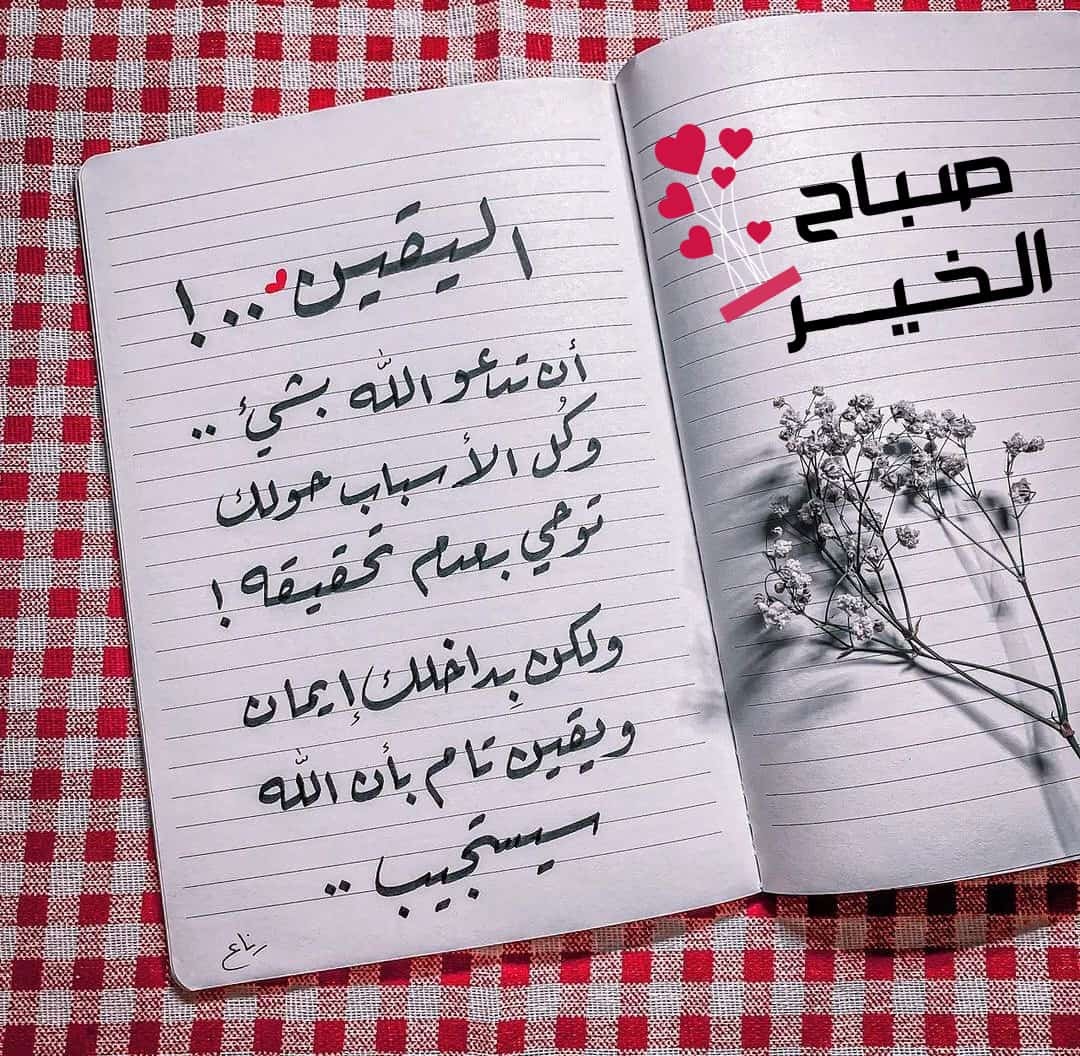 صباح
الخير
اليقين..!
أن تدعو الله بشيئ ..
وكُل الأسباب حولك
توحي بعدم تحقيقه !
ولكن بِداخلك إيمان
ويقين تام بأن الله
سيستجيب ..